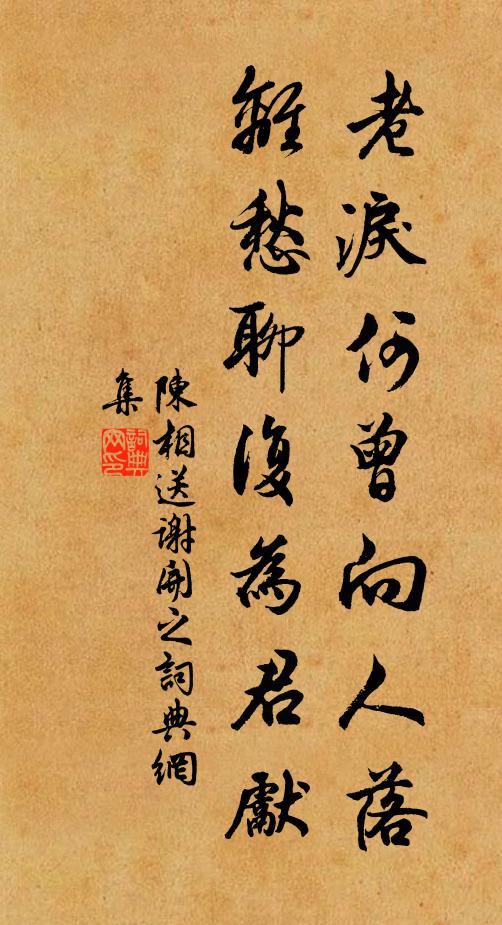 老淚何曾向人落
離愁聊復為君獻
陳相送謝開之詞典網
集
詞典網印